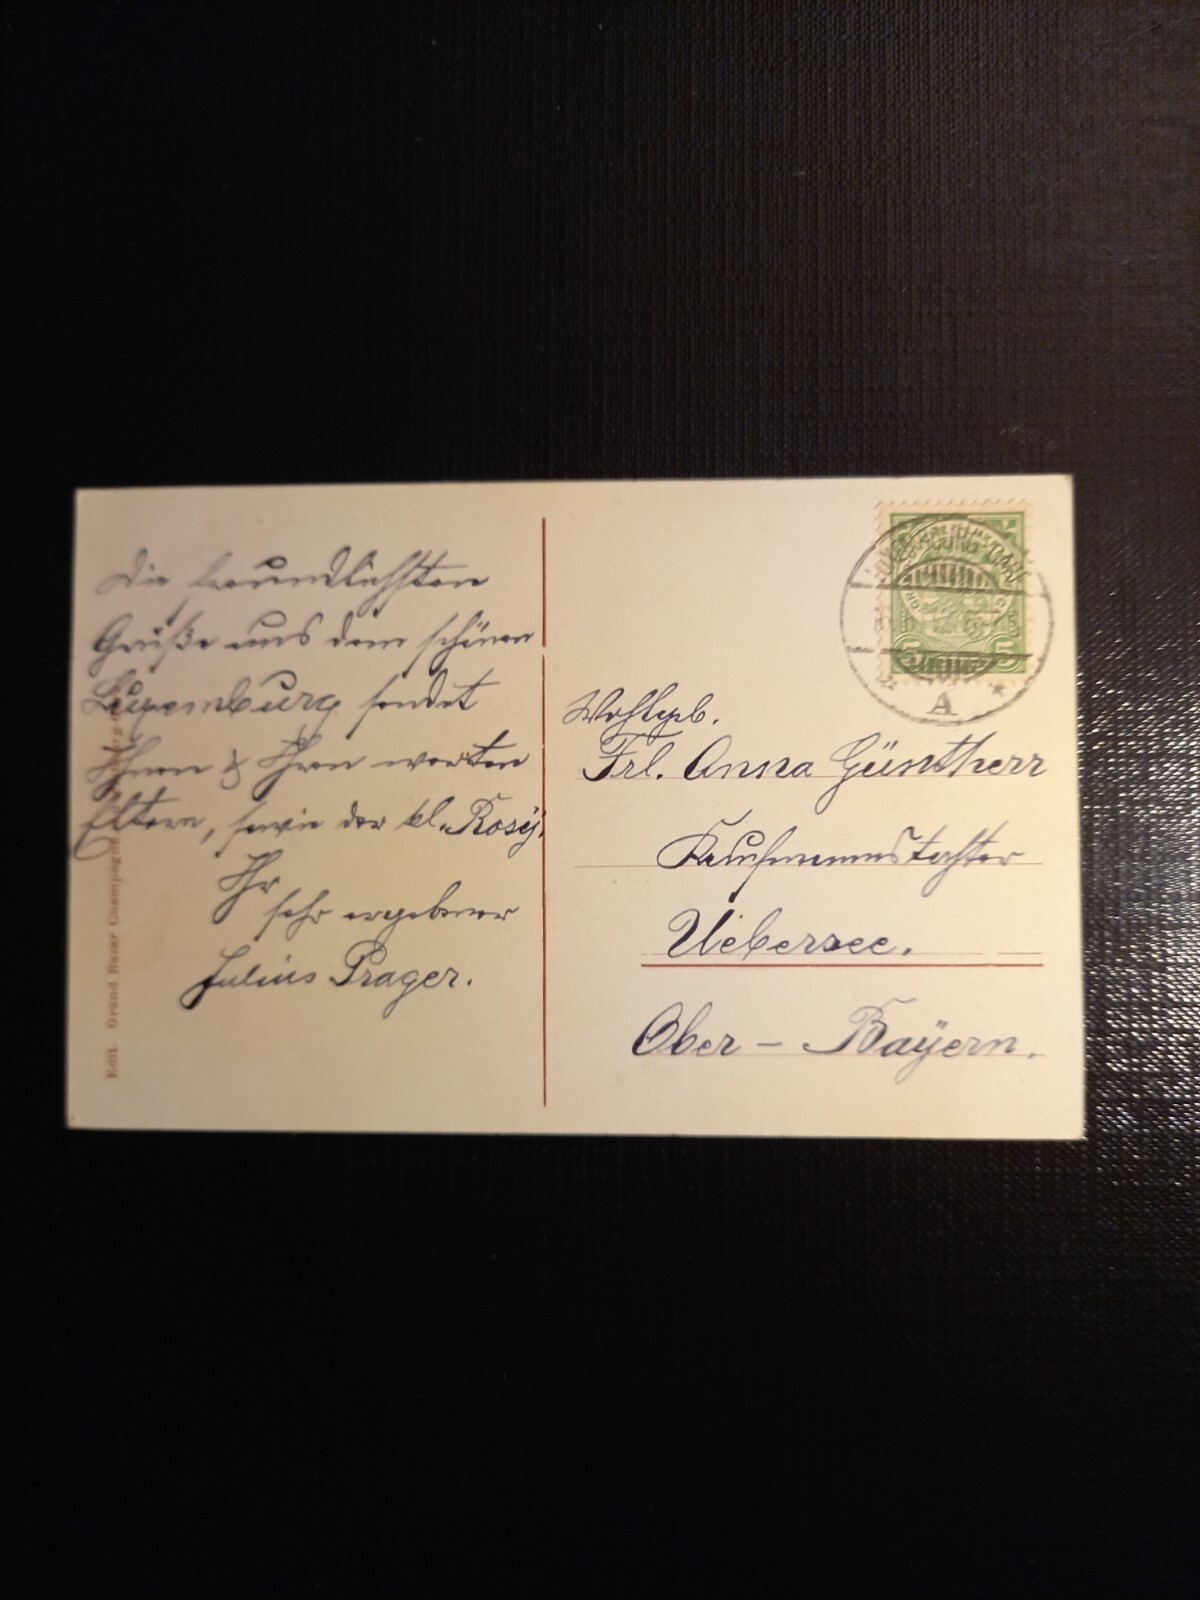 Die freundlichsten
Grüße aus dem schönen
Luxemburg sendet
Ihnen & Ihren werten
Eltern, sowie der kl. Rosÿ.
Ihr
sehr ergebener
Julius Prager.
Edit. Grand Bazar Champagne
A
5 5
Wohlgeb.
Frl. Anna Güntherr
Kaufmannstochter
Uebersee.
Ober - Bayern.